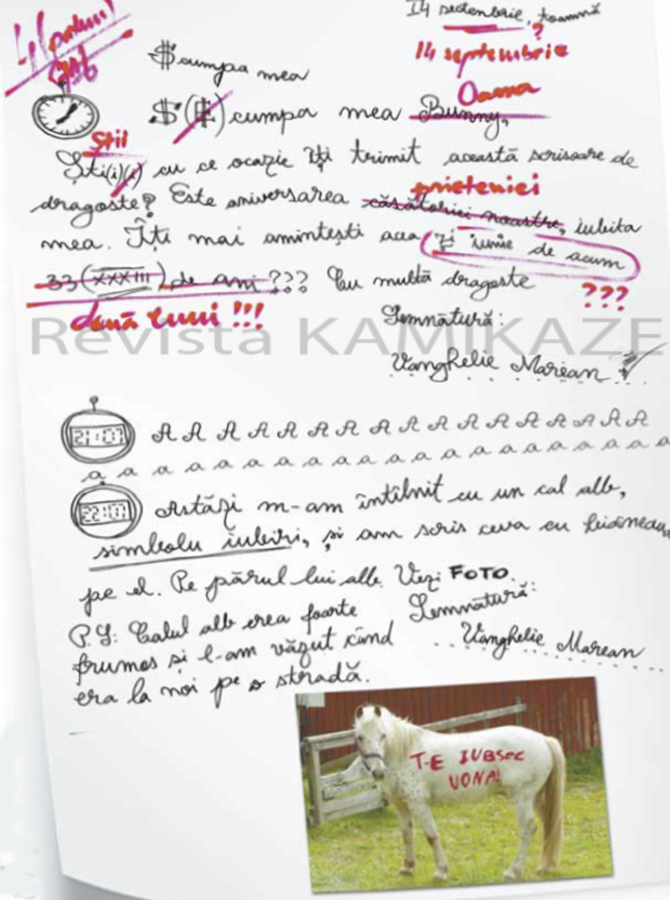 14 sectenbrie, toamnă
?
14 septembrie
$cumpa mea
Oana
$(E)cumpa mea Bunny,
Știi
Ști(i)(i) cu ce ocazie îți trimit această scrisoare de
prieteniei
dragoste? Este aniversarea căsătoriei noastre, iubita
mea. Îți mai amintești acea zi iunie de acum
33 (XXXIII) de ani ??? Cu multă dragoste
???
două luni !!!
Semnătură:
Revista KAMIKAZE
Vanghelie Marean
21:07 A A A A A A A A A A A A A A A A
a a a a a a a a a a a a a a a a a a a
22:07 Astăzi m-am întîlnit cu un cal alb,
simbolu iubiri, și am scris ceva cu
pe el. Pe părul lui alb. Vezi FOTO.
Semnătură:
P.S: Calul alb erea foarte
Vanghelie Marean
frumos și l-am văzut cînd
era la noi pe o stradă.
T-E IUBSEC
UONA!